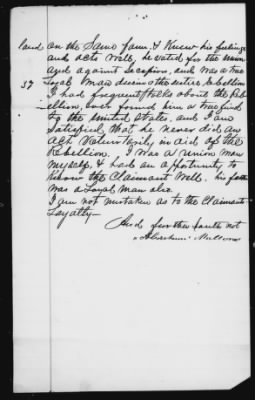 land on the Same farm, & Knew his feelings
and acts well, he voted for the union
and against Secession, and was a true
37 Loyal man during the entire rebellion
I had frequent talks about the Reb-
ellion, ever found him a true friend
to the united states, and I am
Satisfied that he never did an
act Voluntarily, in aid of the
Rebellion, I was a union man
myself, & had an opportunity to
Know the Claimant well, his father
was a Loyal man also
I am not mistaken as to the Claimants
Loyalty—
And further saith not